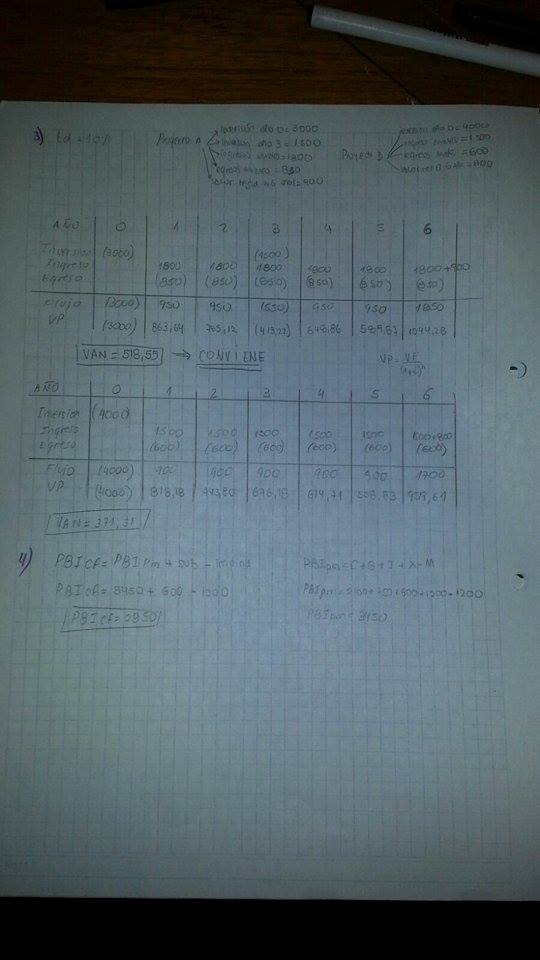 3) td = 10%
Proyecto A
inversión año 0 = 3000
inversión año 3 = 1500
ingresos anuales = 1800
egresos anuales = 850
valor resid a 6 años = 900
Proyecto B
inversión año 0 = 4000
ingreso anual = 1500
egreso anual = 600
valor resid 6 años = 800
AÑO 0 1 2 3 4 5 6
Inversion (3000) (1500)
Ingreso 1800 1800 1800 1800 1800 1800+900
Egreso (850) (850) (850) (850) (850) (850)
Flujo (3000) 950 950 (550) 950 950 1850
VP (3000) 863,64 785,12 (413,22) 648,86 589,87 1044,28
VAN = 518,55 → CONVIENE
AÑO 0 1 2 3 4 5 6
Inversion (4000)
Ingreso 1500 1500 1500 1500 1500 1500+800
Egreso (600) (600) (600) (600) (600) (600)
Flujo (4000) 900 900 900 900 900 1700
VP (4000) 818,18 743,80 676,18 614,71 558,83 959,61
VAN = 371,31
4) PBI cf = PBI pm + sub - imp ind
PBI pm = C + G + I + X - M
PBI cf = 3450 + 600 - 1000
PBI pm =
PBI pm = 3450